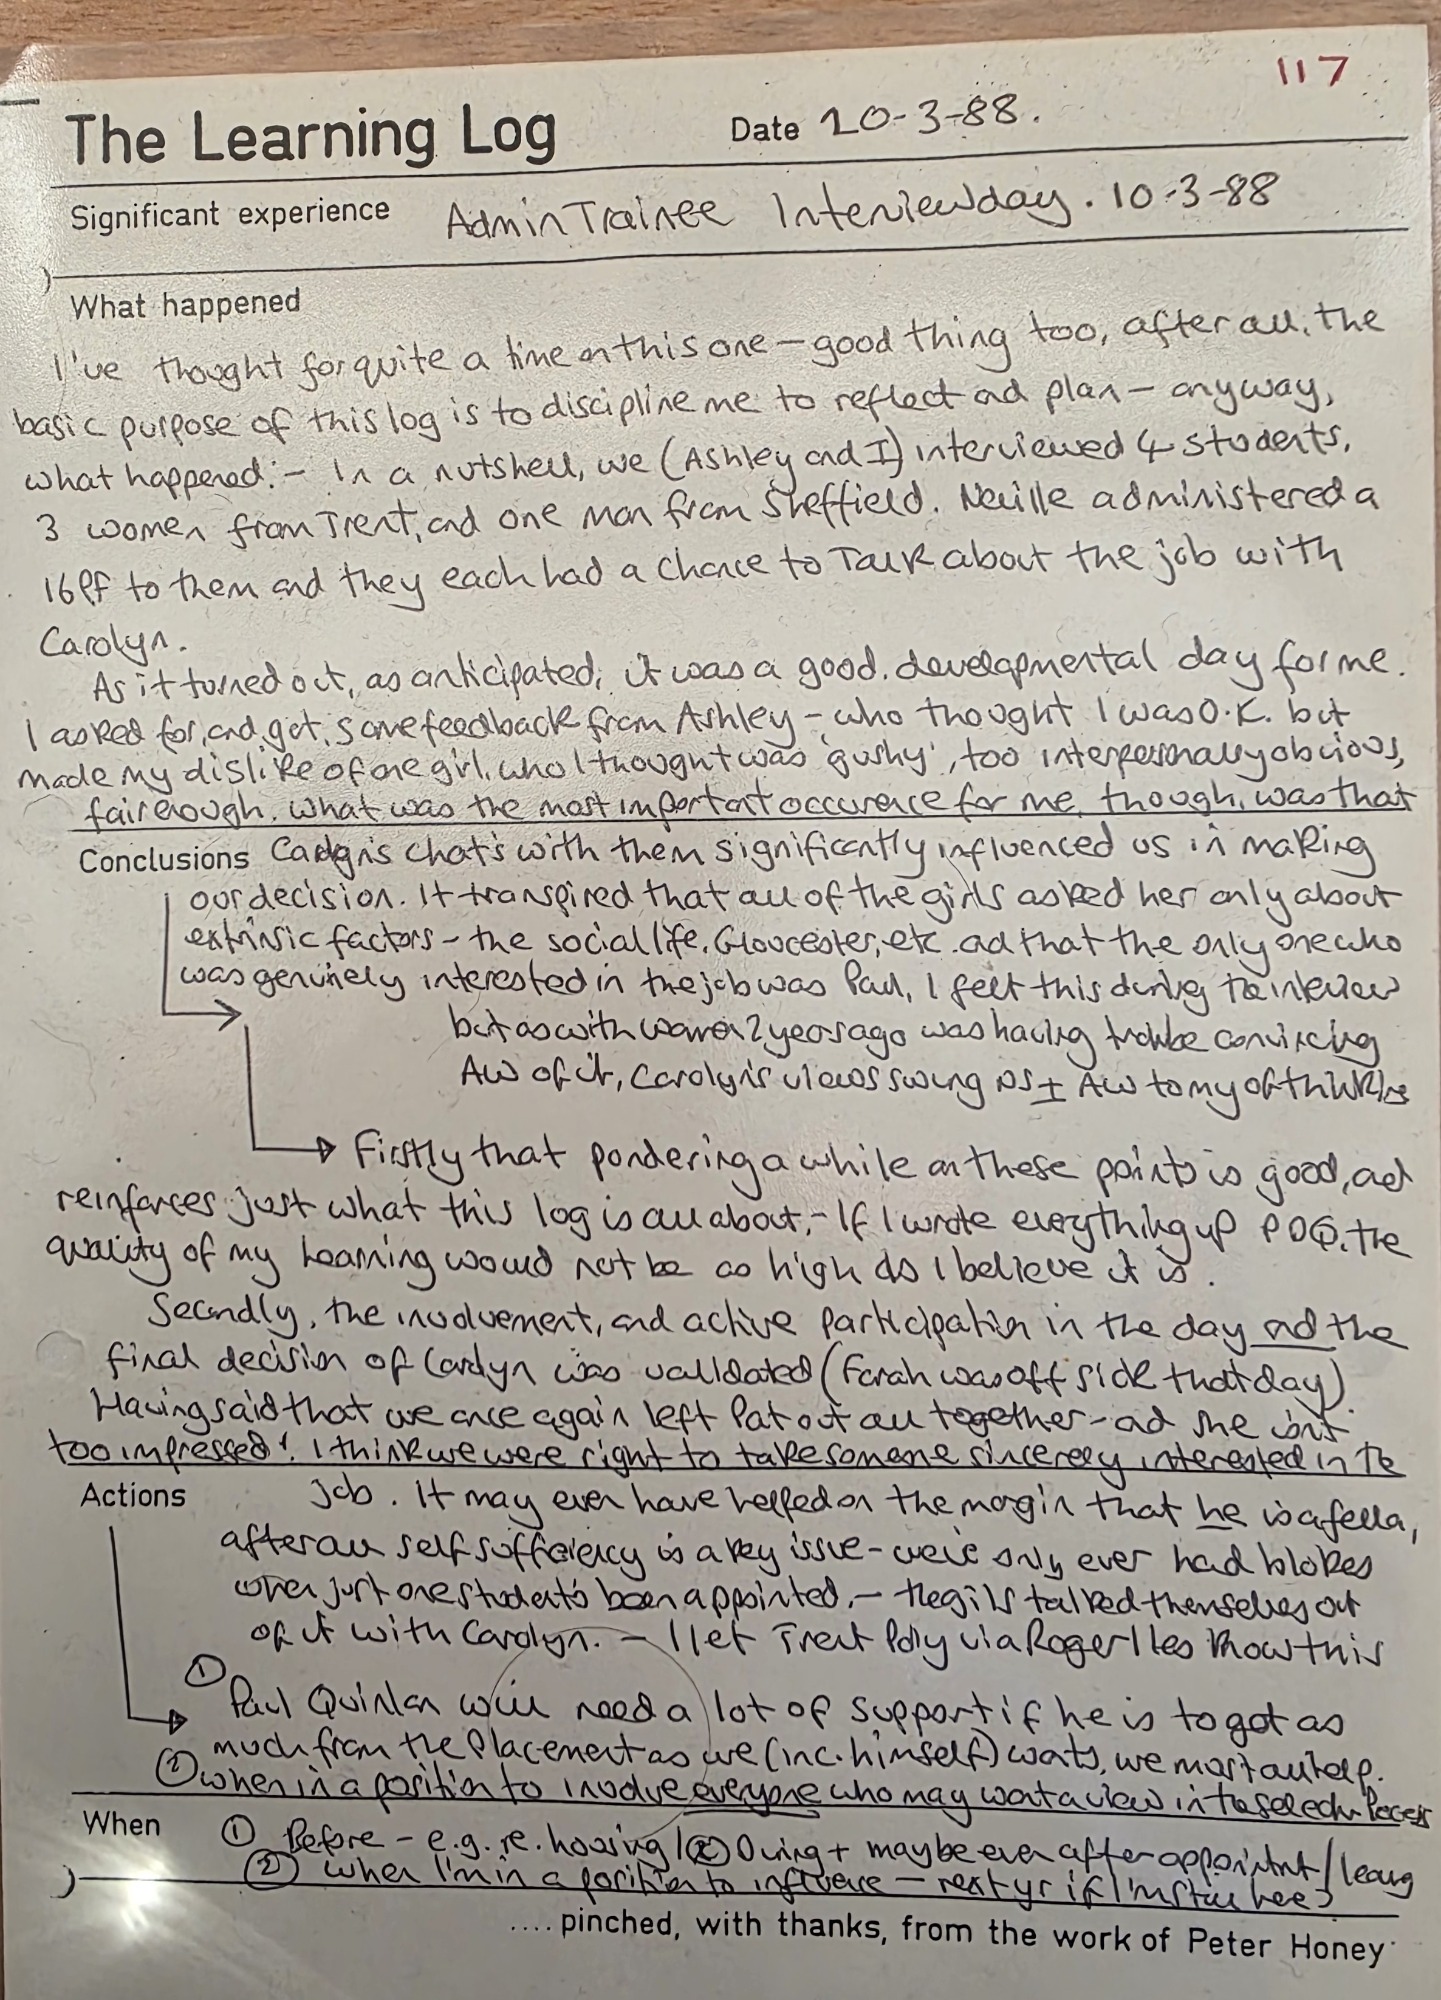 117
The Learning Log Date 10-3-88.
Significant experience Admin Trainee Interviewday. 10-3-88
What happened
I've thought for quite a time on this one - good thing too, after all, the
basic purpose of this log is to discipline me to reflect and plan - anyway,
what happened:- In a nutshell, we (Ashley and I) interviewed 4 students,
3 women from Trent, and one man from Sheffield. Neville administered a
16PF to them and they each had a chance to Talk about the job with
Carolyn.
As it turned out, as anticipated, it was a good, developmental day for me.
I asked for, and got, some feedback from Ashley - who thought I was O.K. but
made my dislike of one girl, who I thought was 'gushy', too interpersonally obvious,
fair enough. What was the most important occurence for me, though, was that
Conclusions Carolyn's chats with them significantly influenced us in making
our decision. It transpired that all of the girls asked her only about
extrinsic factors - the social life, Gloucester, etc. and that the only one who
was genuinely interested in the job was Paul, I felt this during the interview
but as with 2 years ago was having trouble convincing
AW of it, Carolyn's views swung AW to my of thinking
Firstly that pondering a while on these points is good, and
reinforces just what this log is all about, - If I wrote everything up PDQ, the
quality of my learning would not be as high as I believe it is.
Secondly, the involvement, and active participation in the day and the
final decision of Carolyn was validated (Farah was off sick that day)
Having said that we once again left Pat out all together - and she isn't
too impressed! I think we were right to take someone sincerely interested in the
Actions job. It may even have helped on the margin that he is a fella,
after all self sufficiency is a key issue - we've only ever had blokes
when just one student's been appointed, - the girls talked themselves out
of it with Carolyn. - I let Trent Poly via Roger Iles know this
① Paul Quinlan will need a lot of support if he is to get as
much from the placement as we (inc. himself) wants, we must all help.
② when in a position to involve everyone who may want a view in the selectn Process
When ① Before - e.g. re. housing / During + maybe even after appointmt / leaving
② When I'm in a position to influence - next yr if I'm still here?
.... pinched, with thanks, from the work of Peter Honey